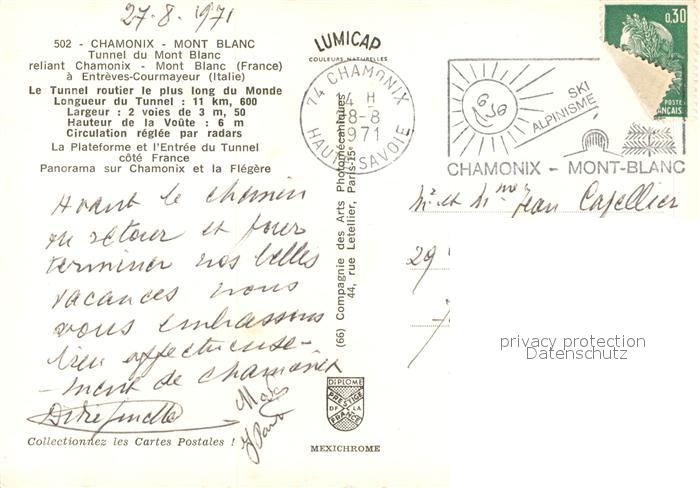 27-8-1971
502 - CHAMONIX - MONT BLANC
Tunnel du Mont Blanc
reliant Chamonix - Mont Blanc (France)
à Entrèves-Courmayeur (Italie)
Le Tunnel routier le plus long du Monde
Longueur du Tunnel : 11 km, 600
Largeur : 2 voies de 3 m, 50
Hauteur de la Voûte : 6 m
Circulation réglée par radars
La Plateforme et l'Entrée du Tunnel
côté France
Panorama sur Chamonix et la Flégère
Avant le chemin
du retour et pour
terminer nos belles
vacances nous
vous embrassons
bien affectueuse-
-ment de chamonix
Collectionnez les Cartes Postales !
LUMICAP
COULEURS NATURELLES
(66) Compagnie des Arts Photomécaniques
44, rue Letellier, Paris-15e
DIPLOME
PRESTIGE
DE LA
FRANCE
MEXICHROME
74 CHAMONIX
H
8-8
1971
HAUTE SAVOIE
SKI
ALPINISME
CHAMONIX - MONT-BLANC
0,30
POSTE
FRANÇAIS
Mr et Mme Jean Capellier
29
privacy protection
Datenschutz